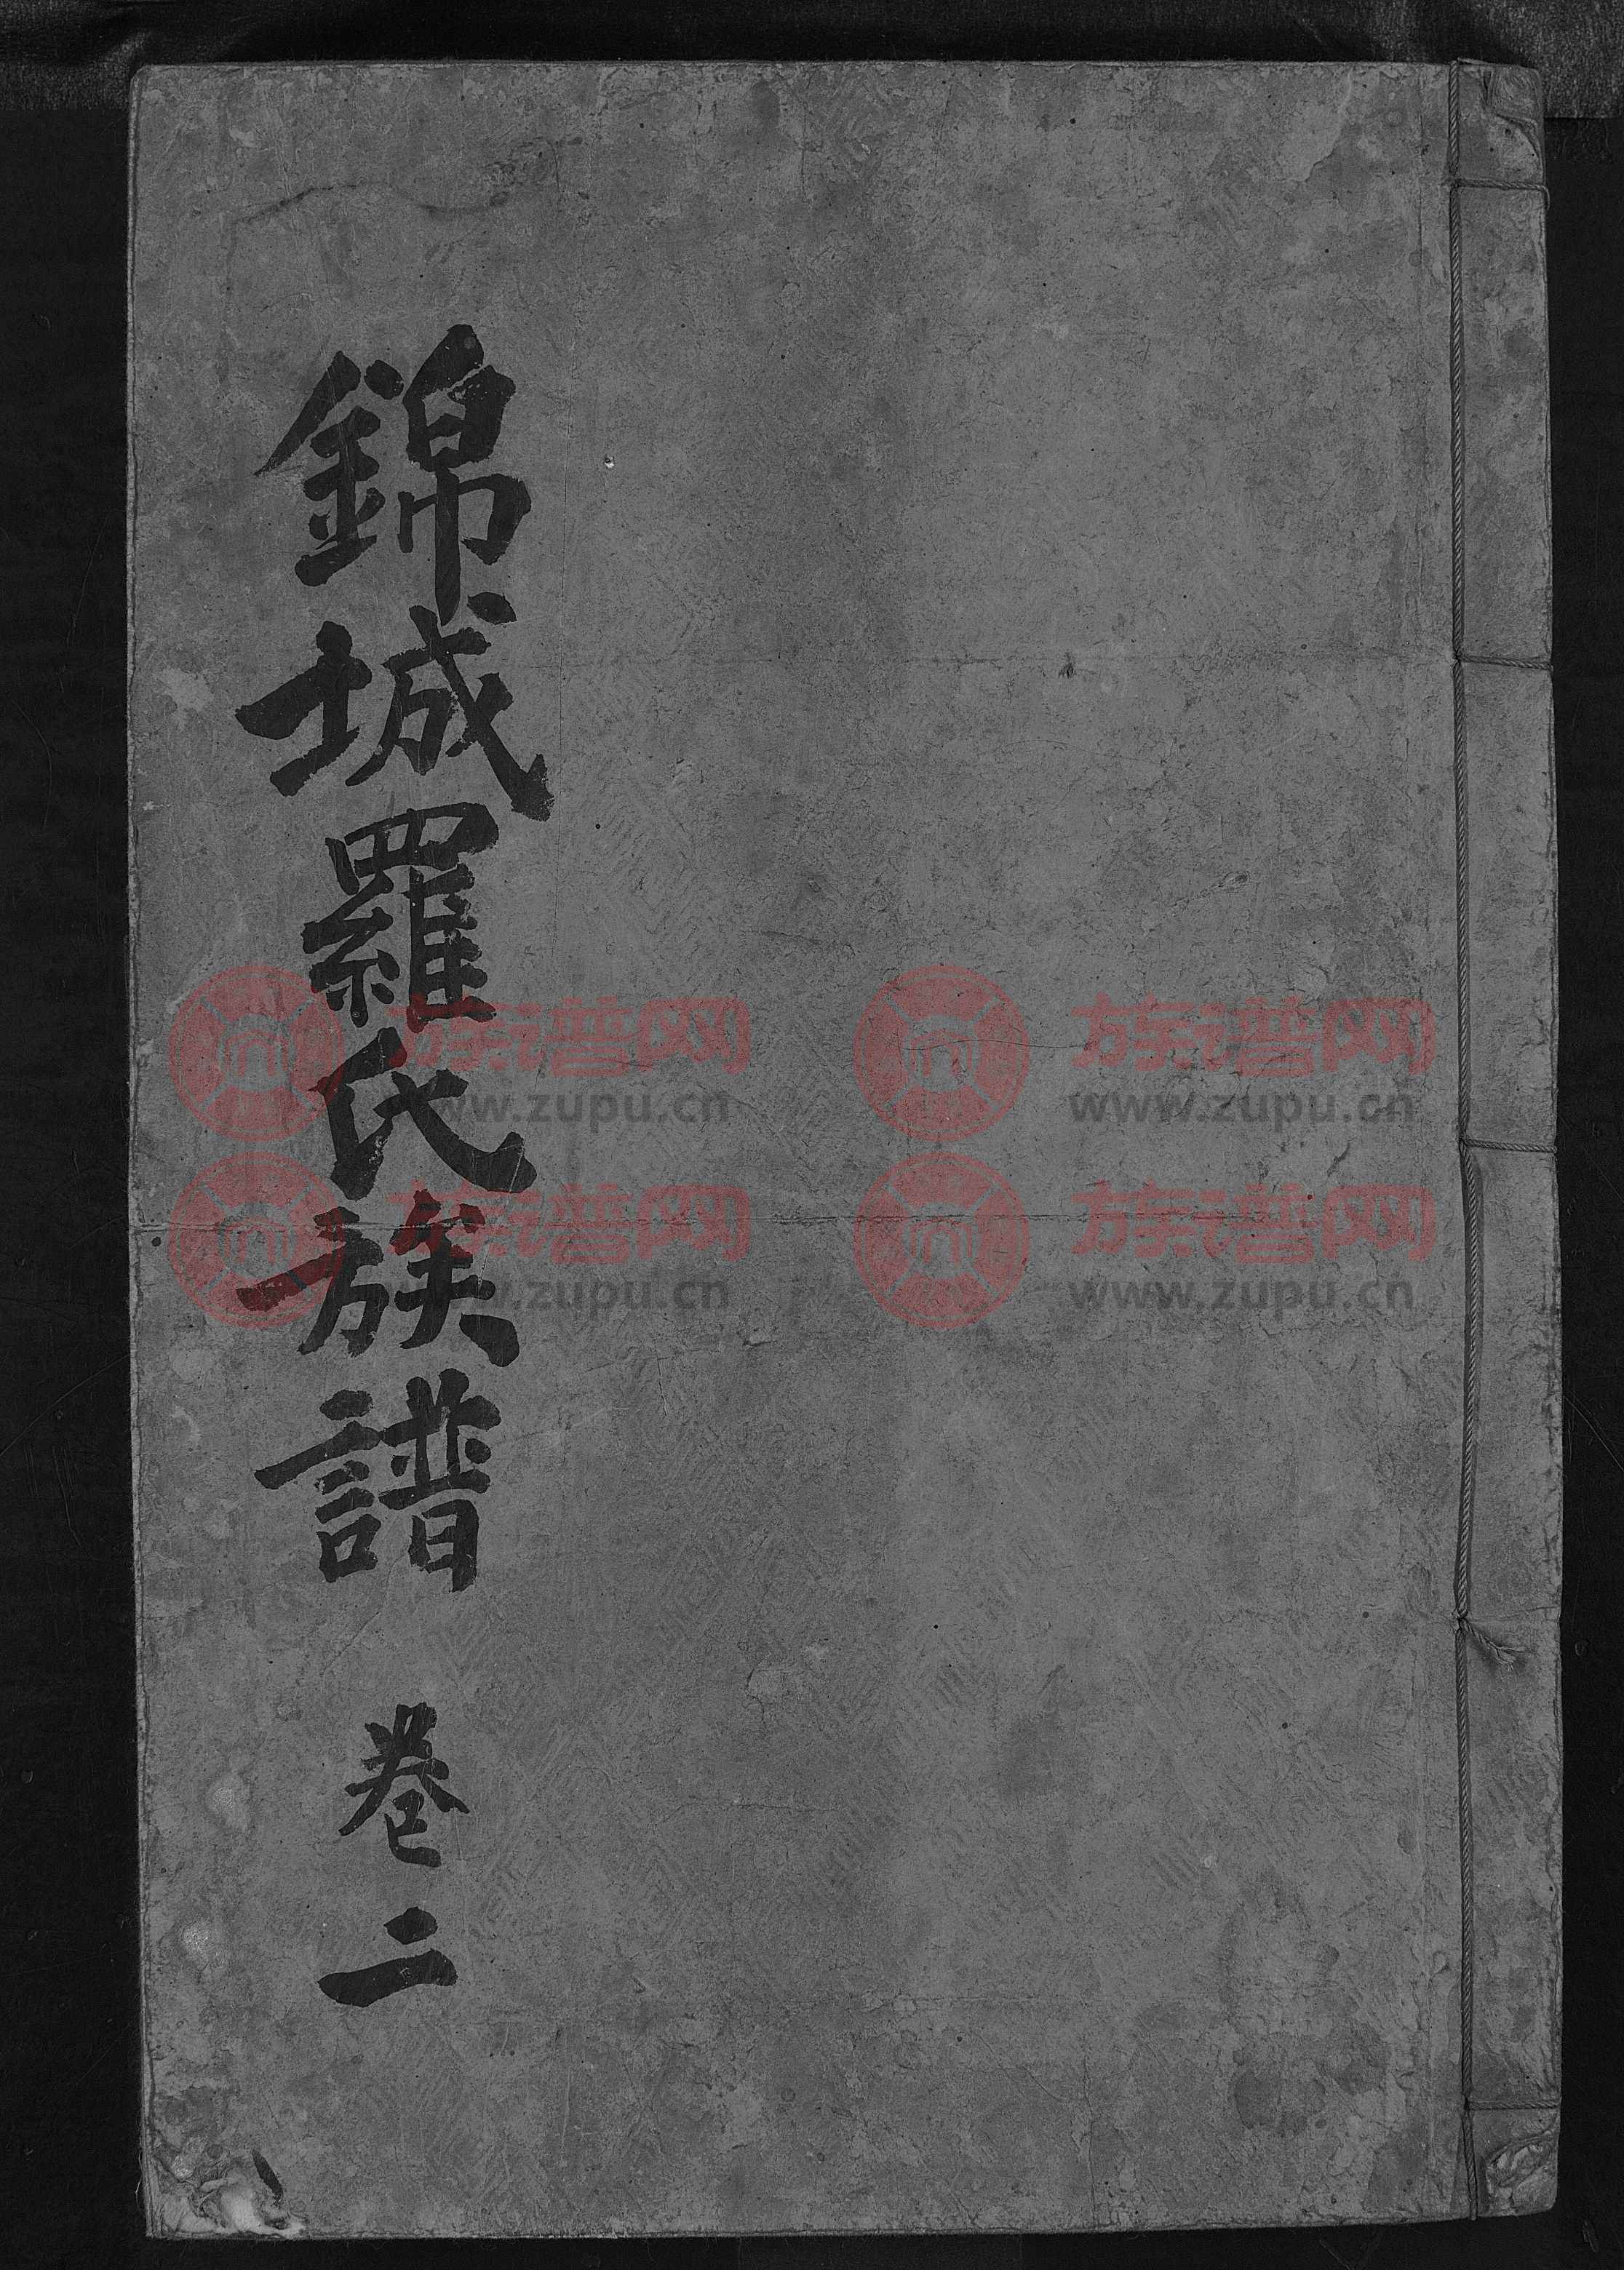 錦城羅氏族譜 卷二
族谱网 族谱网
www.zupu.cn www.zupu.cn
族谱网 族谱网
www.zupu.cn www.zupu.cn